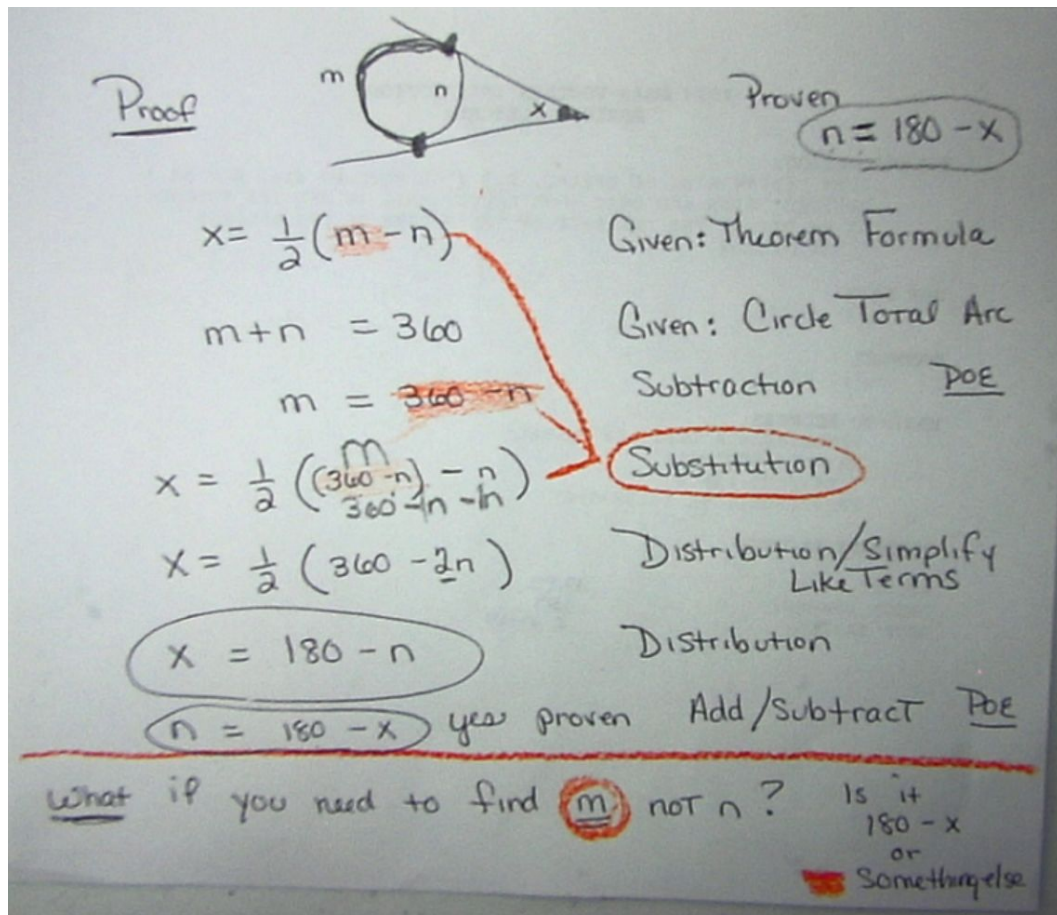 m
n
x
Proof
Proven
n = 180 - x
x = 1/2 (m - n) Given: Theorem Formula
m + n = 360 Given: Circle Total Arc
m = 360 - n Subtraction POE
m
x = 1/2 ((360 - n) - n) Substitution
360 - n - n
x = 1/2 (360 - 2n) Distribution/Simplify
Like Terms
x = 180 - n Distribution
n = 180 - x yes proven Add/Subtract POE
What if you need to find m not n? Is it
180 - x
or
Something else